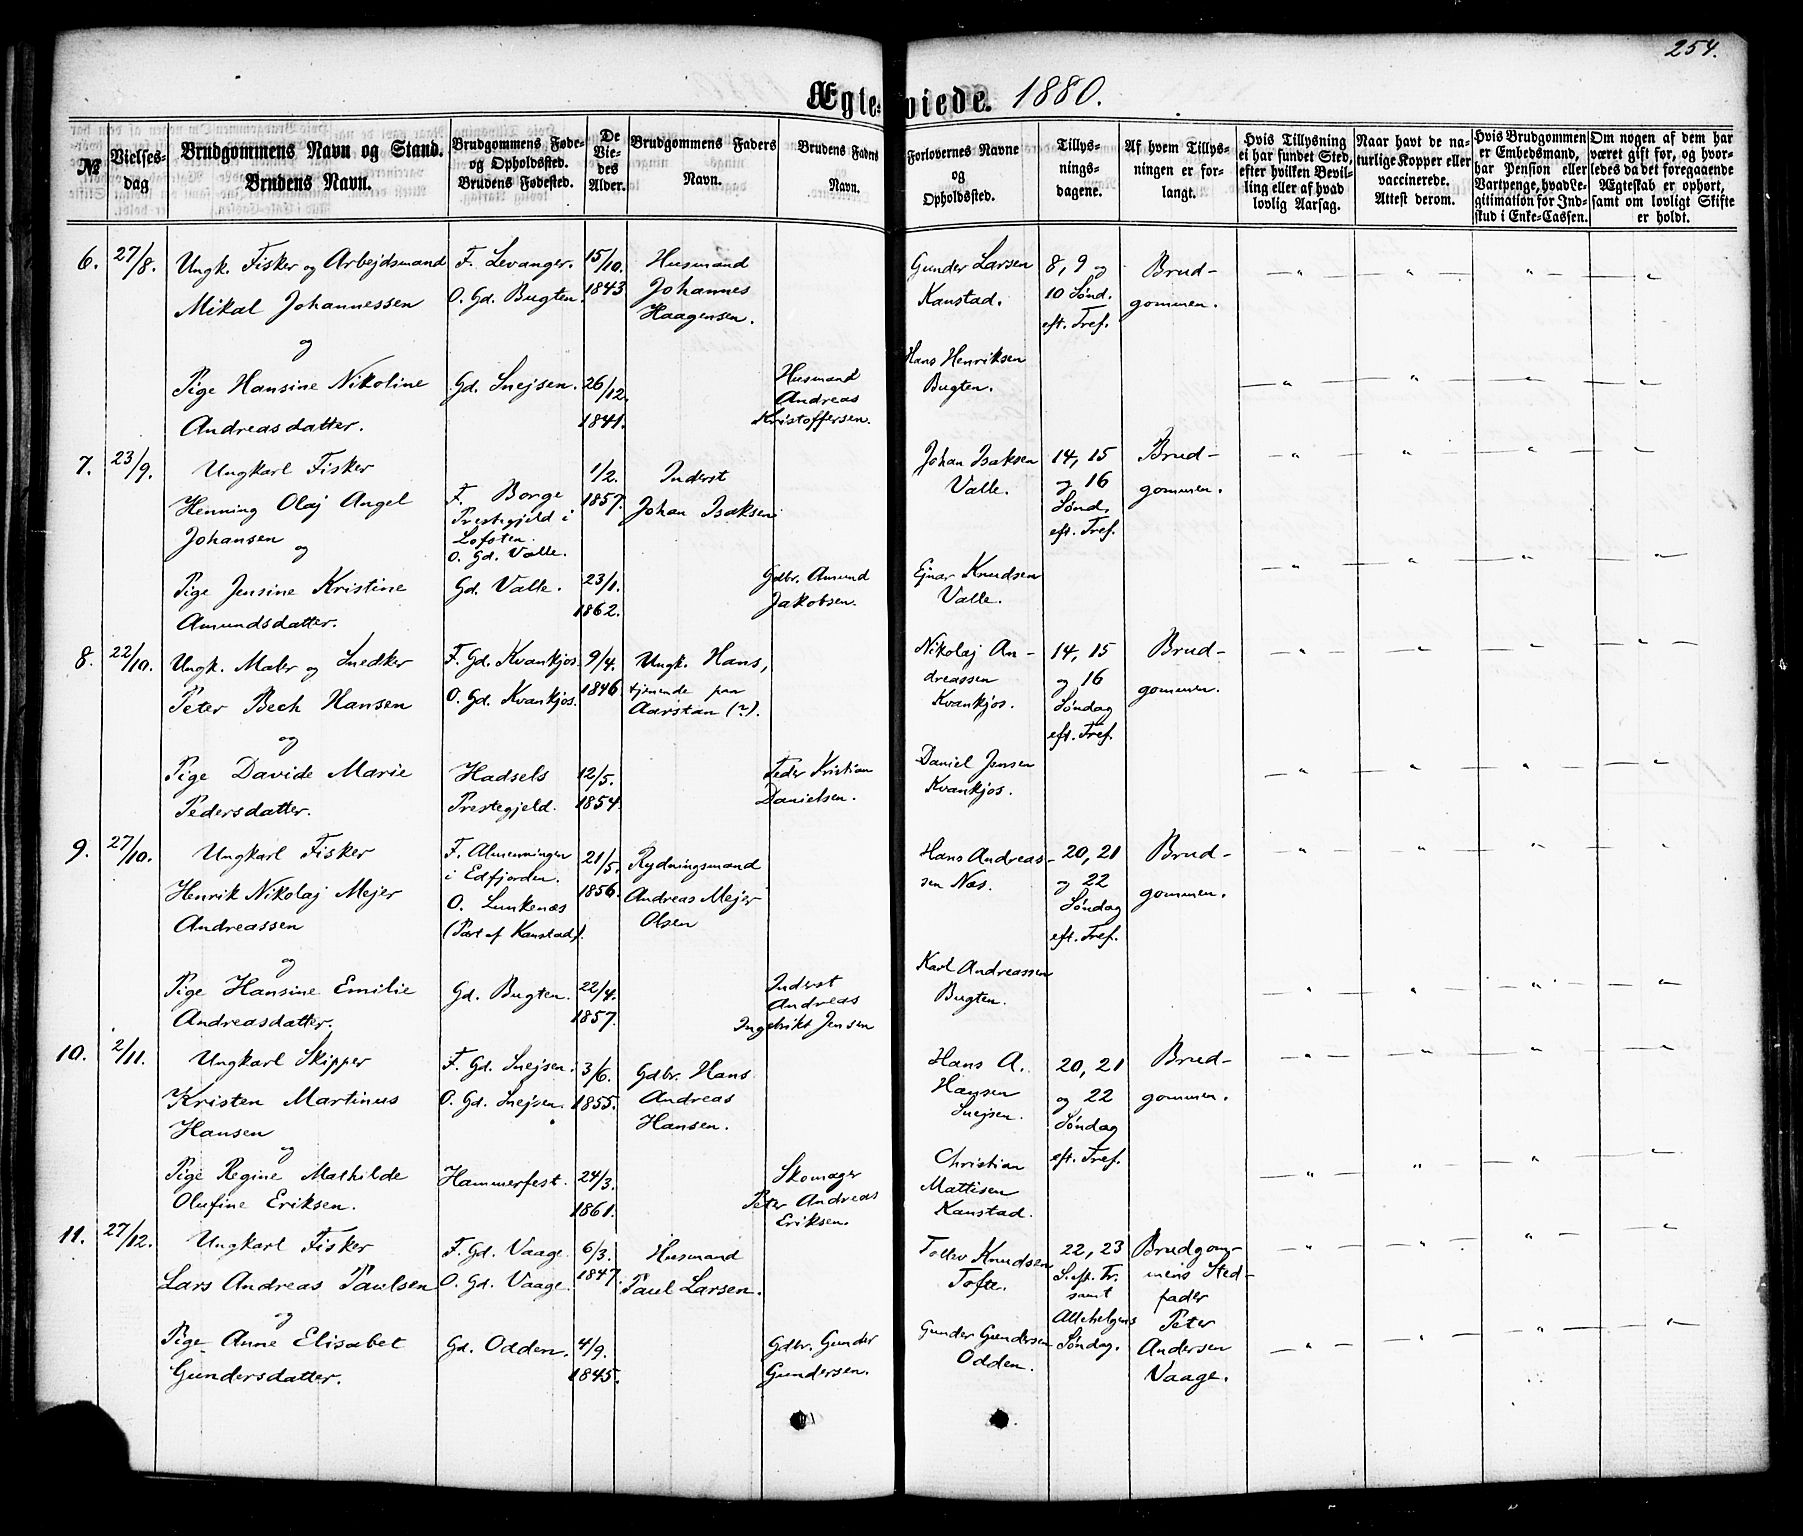 254.
Ægteviede. 1880.
№
Vielses-
dag
Brudgommens Navn og Stand.
Brudens Navn.
Brudgommens Føde-
og Opholdssted.
Brudens Fødested.
De
Vie-
des
Alder.
Brudgommens Faders
Navn.
Brudens Faders
Navn.
Forlovernes Navne
og
Opholdssted.
Tillys-
nings-
dagene.
Af hvem Tillys-
ningen er for-
langt.
Hvis Tillysning
ei har fundet Sted,
efter hvilken Bevil-
ling eller af hvad
lovlig Aarsag.
Naar havt de na-
turlige Kopper eller
vaccinerede.
Attest derom.
Hvis Brudgommen
er Embedsmand,
har Pension eller
Vartpenge, hvad Le-
gitimation for Ind-
skud i Enke-Cassen.
Om nogen af dem har
været gift før, og hvor-
ledes da det foregaaende
Ægteskab er ophørt,
samt om lovligt Skifte
er holdt.
6.
27/8.
Ungk. Fisker og Arbejdsmand
Mikal Johannessen
og
Pige Hansine Nikoline
Andreasdatter.
F. Levanger.
O. Gd. Bugten.
Gd. Snejsen.
15/10.
1843
26/12.
1841.
Husmand
Johannes
Haagensen.
Husmand
Andreas
Kristoffersen.
Gunder Larsen
Kanstad.
Hans Henriksen
Bugten.
8, 9 og
10 Sønd.
eft. Tref.
Brud-
gommen.
7.
23/9.
Ungkarl Fisker
Henning Olaj Angel
Johansen
og
Pige Jensine Kristine
Amundsdatter.
F. Borge
Prestegjeld i
Lofoten.
O. Gd. Valle.
Gd. Valle.
1/2.
1857.
23/1.
1862.
Inderst
Johan Isaksen
Gdbr. Amund
Jakobsen.
Johan Isaksen
Valle.
Ejnar Knudsen
Valle.
14, 15
og 16
Sønd.
eft. Tref.
Brud-
gommen.
8.
22/10.
Ungk. Maler og Snedker
Peter Bech Hansen
og
Pige Davide Marie
Pedersdatter.
F. Gd. Kvankjos.
O. Gd. Kvankjos.
Hadsels
Prestegjeld.
9/4.
1846
12/5.
1854.
Ungk. Hans,
tjenende paa
Aarstan (?).
Peder Kristian
Danielsen.
Nikolaj An-
dreassen
Kvankjos.
Daniel Jensen
Kvankjos.
14, 15
og 16
Søndag
eft. Tref.
Brud-
gommen.
9.
27/10.
Ungkarl Fisker
Henrik Nikolaj Mejer
Andreassen
og
Pige Hansine Emilie
Andreasdatter.
F. Almenningen
i Edfjorden.
O. Lunkenæs
(Part af Kanstad).
Gd. Bugten.
21/5.
1856.
22/4.
1857.
Rydningsmand
Andreas Mejer
Olsen
Inderst
Andreas
Ingebrikt Jensen
Hans Andreas-
sen Næs.
Karl Andreassen
Bugten.
20, 21
og 22
Søndag
eft. Tref.
Brud-
gommen.
10.
2/11.
Ungkarl Skipper
Kristen Martinus
Hansen
og
Pige Regine Mathilde
Olufine Eriksen.
F. Gd. Snejsen.
O. Gd. Snejsen.
Hammerfest.
3/6.
1855.
24/3.
1861.
Gdbr. Hans
Andreas
Hansen.
Skomager
Peter Andreas
Eriksen.
Hans A.
Hansen
Snejsen.
Christian
Mattisen
Kanstad.
20, 21
og 22
Søndag
eft. Tref.
Brud-
gommen.
11.
27/12.
Ungkarl Fisker
Lars Andreas Paulsen
og
Pige Anne Elisabet
Gundersdatter.
F. Gd. Vaage.
O. Gd. Vaage.
Gd. Odden.
6/3.
1847.
4/9.
1845.
Husmand
Paul Larsen.
Gdbr. Gunder
Gundersen.
Tollev Knudsen
Tofte.
Gunder Gundersen
Odden.
22, 23
S. eft. Tr.
samt
Allehelgens
Søndag.
Brudgom-
mens Sted-
fader
Peter
Andersen
Vaage.